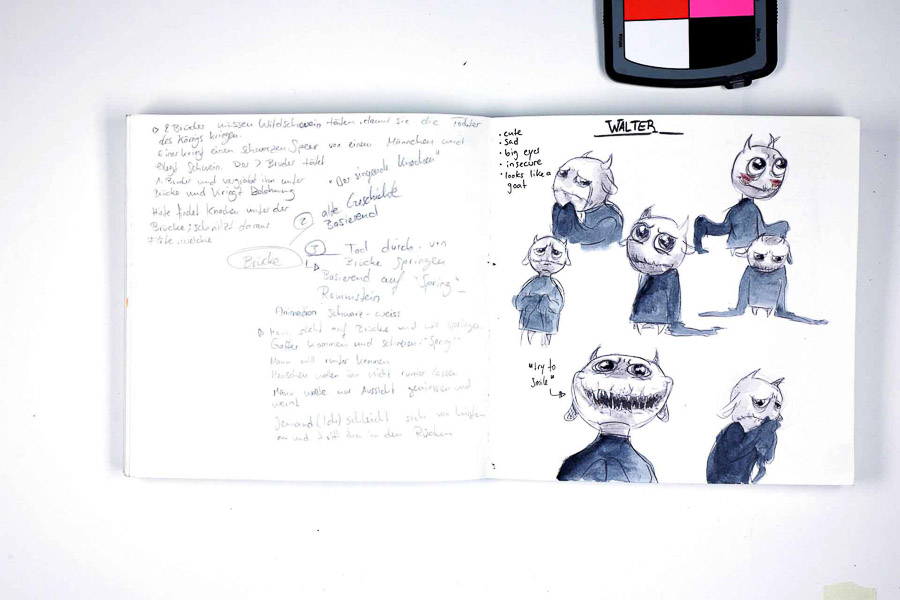 2 Brüder müssen Wildschwein töten, damit sie die Tochter
des Königs kriegen.
einer kriegt einen schwarzen Speer von einem Männchen und
erlegt Schwein. Der 2 Bruder tötet
1. Bruder und vergräbt ihn unter
Brücke und kriegt Belohnung
"Der singende Knochen"
Hirte findet Knochen unter der
Brücke, schnitzt daraus
Flöte, welche
2 alte Geschichte
Basierend
Brücke
1 Tod durch von
Brücke springen
Basierend auf "Spring"
Rammstein
Animation Schwarz-weiss
Mann steht auf Brücke und will springen
Gaffer kommen und schreien "Spring"
Mann will runter kommen
Menschen wollen ihn nicht runter lassen
Mann wollte nur Aussicht geniessen und
weint
Jemand (Ich) schleicht sich von hinten
an und tritt ihn in den Rücken
WALTER
• cute
• sad
• big eyes
• insecure
• looks like a
goat
"try to
smile"